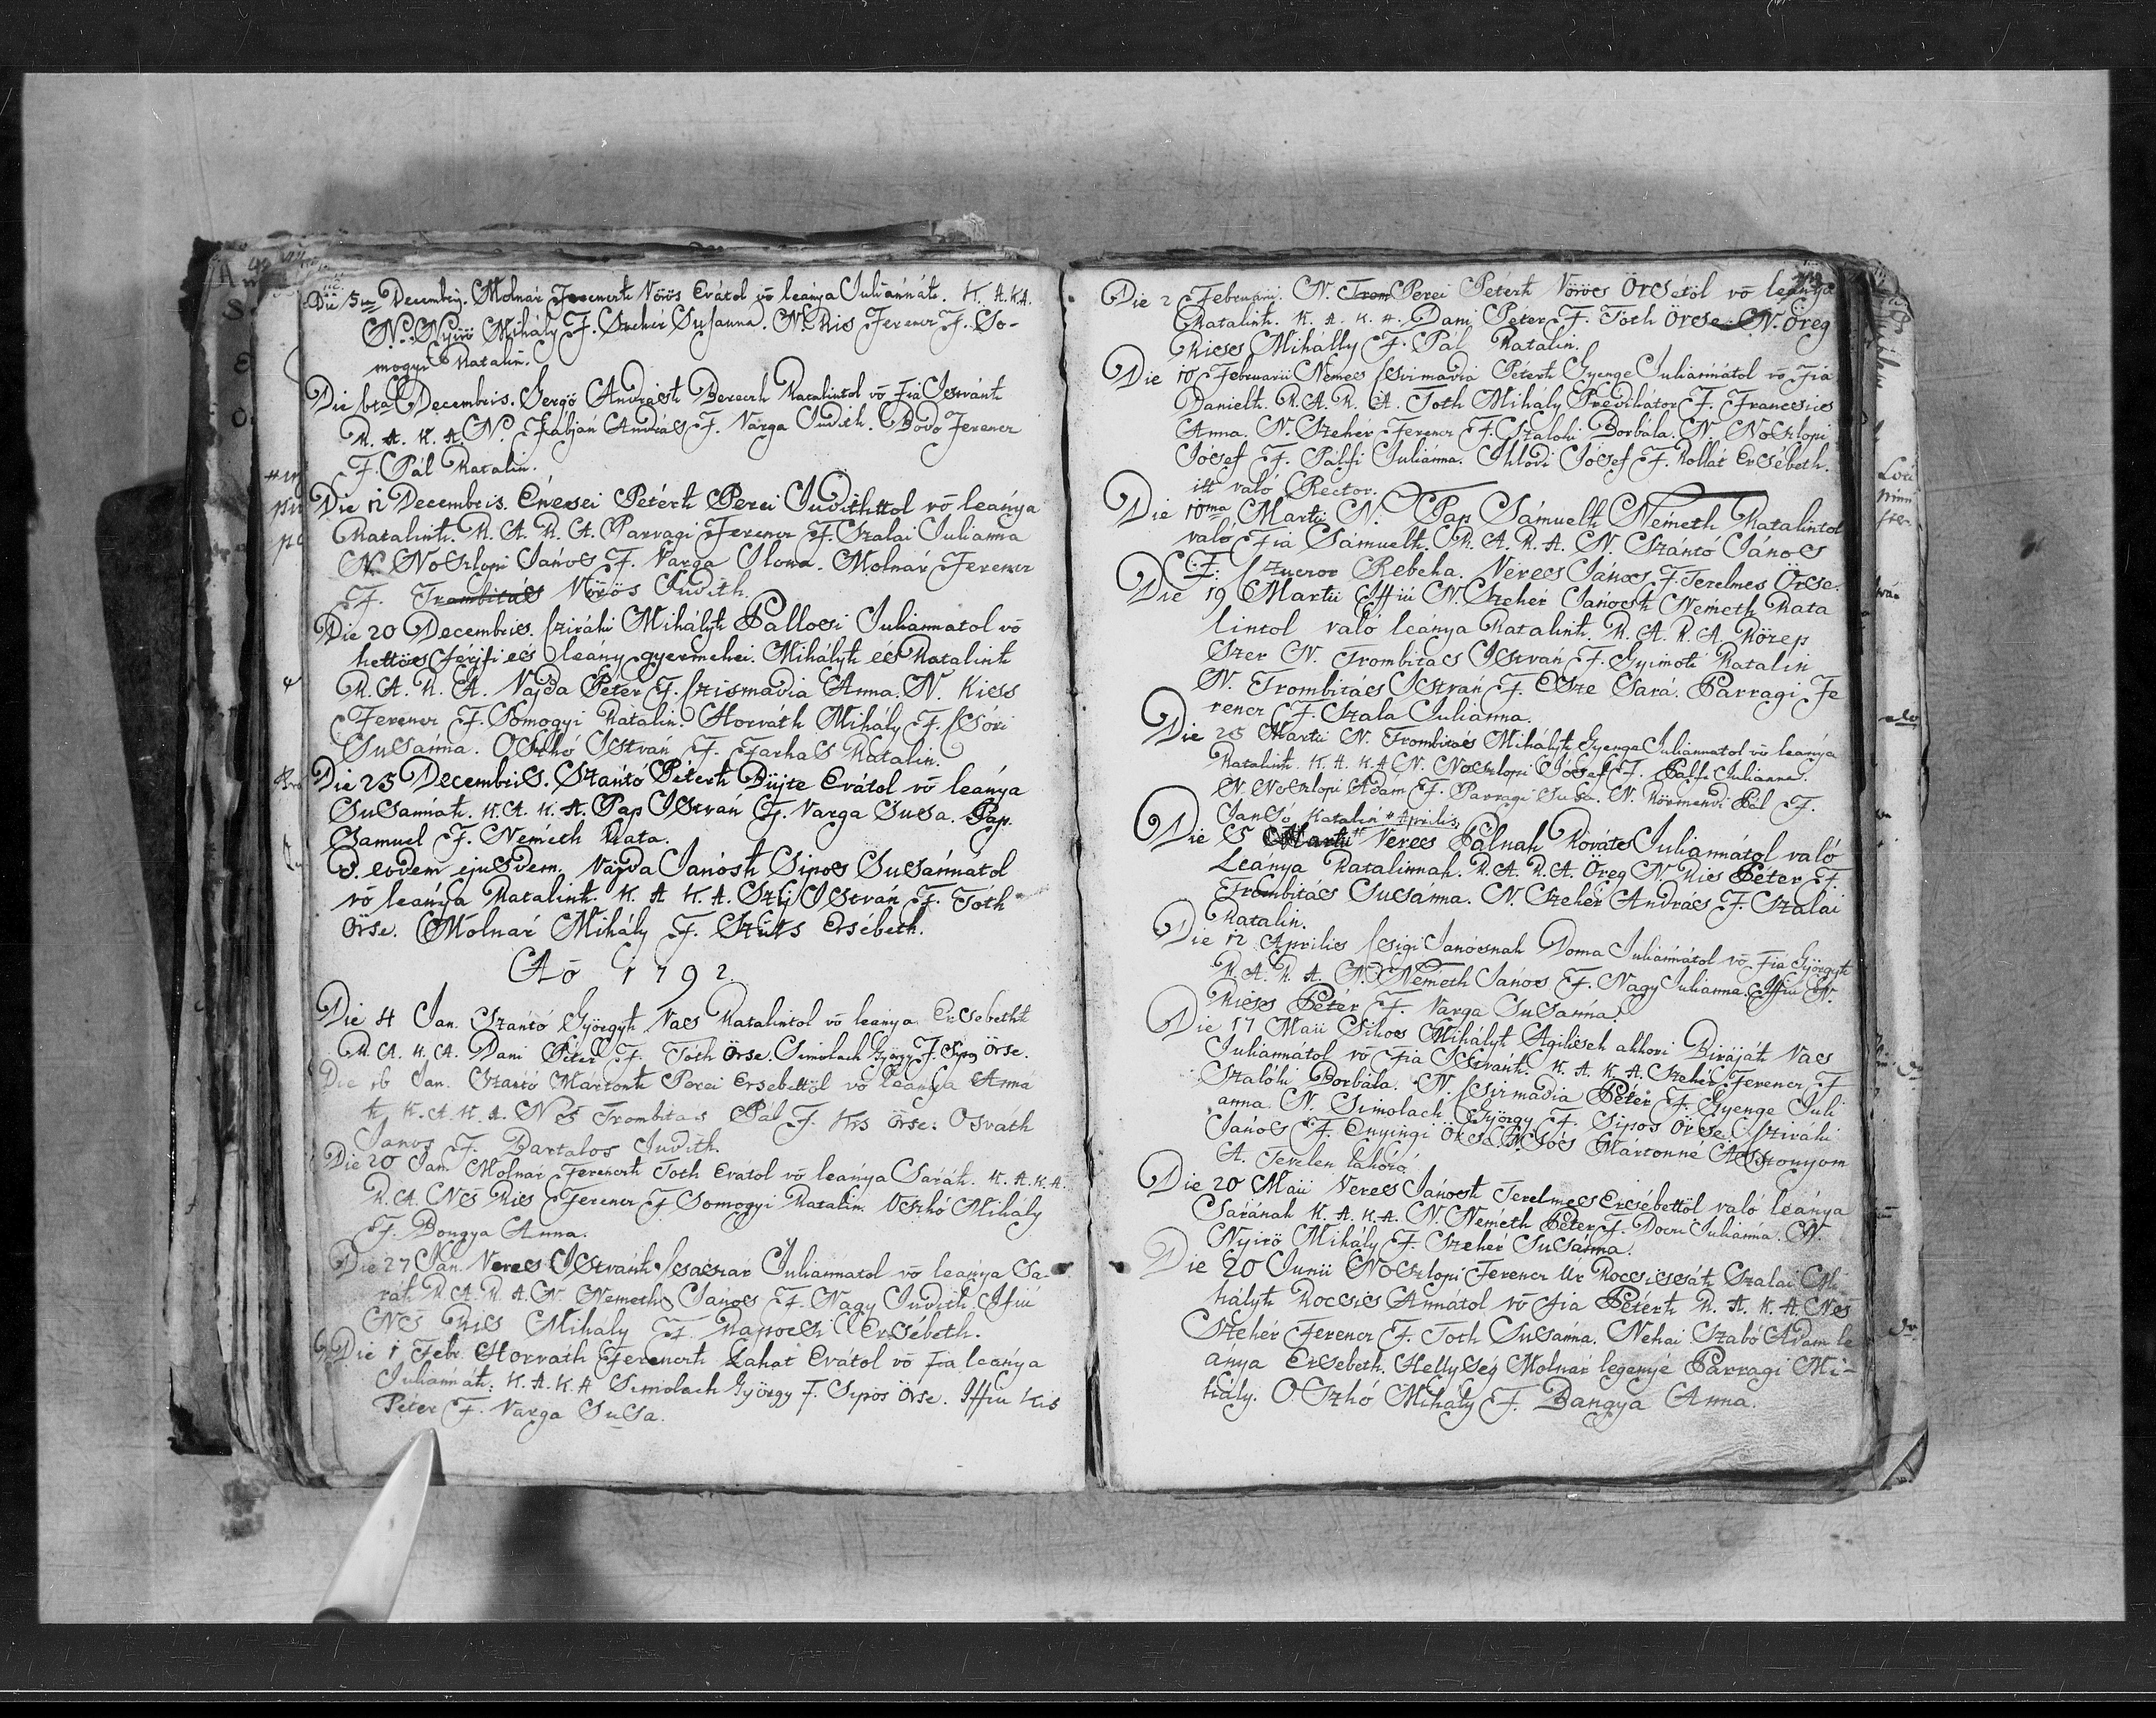 Die 5ta Decembrij. Molnár Ferencnek Vörös Evátol vō leánya Juliannát. K. A. K. A.
N. Nyirö Mihály F. Szehér Susanna. N. Kis Ferencz F. So-
mogyi Katalin.
Die 6ta Decembris. Gergö Andrásk Berech Katalintol vō Fia Istvánk
K. A. K. A. N. Fábján András F. Varga Judith. Bodo Ferencz
F. Pál Katalin.
Die 12 Decembris. Enesei Péterk Perei Judithtol vō leánya
Katalink. K. A. K. A. Parragi Ferencz F. Szalai Julianna
N. Noszlopi János F. Varga Ilona. Molnár Ferencz
F. Trombitás Vörös Judith.
Die 20 Decembris. Csiráki Mihályk Pallosi Juliannatol vō
kettös férjfi és leany gyermekei. Mihályk és Katalink
K. A. K. A. Vajda Péter F. Csizmadia Anna. N. Kiss
Ferencz F. Somogyi Katalin. Horváth Mihály F. Csóri
Susánna. Oszkó István F. Farkas Katalin.
Die 25 Decembris. Szántó Péterk Büjte Evátol vō leánya
Susannák. K. A. K. A. Pap István F. Varga Susa. Pap
Samuel F. Németh Kata.
D. eodem ejusdem. Vajda Jánosk Sipos Susánnától
vō leánya Katalink. K. A. K. A. Szíj István F. Tóth
Örse. Molnár Mihály F. Szüts Ersébeth.
Aō 1792.
Die 4 Jan. Szántó Györgyk Vas Katalintol vō leánya Ersebethk
K. A. K. A. Dani Péter F. Tóth Örse. Simolach György F. Sipos Örse.
Die 16 Jan. Szántó Mártonk Perei Ersebettöl vō leánya Anná
k K. A. K. A. Ns Trombitas Pál F. Kis Örse. Osváth
Janos F. Bartalos Judith.
Die 20 Jan. Molnár Ferencnk Toth Evátol vō leánya Sárák. K. A. K. A.
K. A. Ns Kis Ferencz F Somogyi Katalin. Oszkó Mihály
F. Dongya Anna.
Die 27 Jan. Veres Istvánk Csaszar Juliannatol vō leánya Sa-
rák K. A. K. A. N. Nemeth János F. Nagy Judith. Ifiú
Ns Kis Mihály F. Kapocsi Ersébeth.
Die 1 Febr. Horváth Ferencnk Lakat Evátol vō fia leánya
Juliannák: K. A. K. A Simolach György F. Sipos Örse. Iffiu Kis
Péter F. Varga Susa.
Die 2 Februarii. N. Trom Perei Péterk Vörös Örsétöl vō leánya
Katalink. K. A. K. A. Dani Péter F. Toth Örse. N. Öreg
Kiss Mihálly F. Pál Katalin.
Die 10 Februarii Nemes Csizmadia Péterk Gyenge Juliannátol vō Fia
Danielk. K. A. K. A. Toth Mihaly Predikator F. Francsics
Anna. N. Szeher Ferencz F. Szaloki Borbála. N. Noszlopi
Jósef F. Pálfi Julianna. Ihlodi Jósef F. Kollát Ersébeth.
itt való Rector.
Die 10ma Martii N. Pap Sámuelk Németh Katalintol
való Fia Sámuelk. K. A. K. A. N. Szántó János
F: Czuczor Rebeka. Veres János F. Terelmes Örse.
Die 19 Martii Iffiú N. Szehér Jánosk Németh Kata
lintol való leánya Katalink. K. A. K. A. Közep
Szer N. Trombitas István F. Gyimoti Katalin
N. Trombitás István F. Esze Sará. Parragi Fe
rencz F. Szala Julianna.
Die 25 Martii N. Trombitás Mihályk Gyenge Juliannatol vō leánya
Katalink. K. A. K. A N. Noszlopi Jósef F. Palfi Julianna.
N. Noszlopi Adám F. Parragi Susa. N. Körmendi Pál F.
Jansó Katalin * Aprilis
Die 5 Martii Veres Pálnak Kováts Juliannátol való
Leánya Katalinnak. K. A. K. A. Öreg N. Kis Péter F.
Trombitás Susánna. N. Szehér András F. Szalai
Katalin.
Die 12 Aprilis Csigi Jánosnak Doma Juliannátol vō Fia Györgyk
K. A. K. A. N. Németh János F. Nagy Julianna. Iffiu N.
Kiss Péter F. Varga Susánna.
Die 17 Maii Sikos Mihályk Agilisek akkori Biráják Vas
Juliannátol vō Fia Istvánk K. A. K. A. Szehér Ferencz F
Szalóki Borbála. N. Csizmadia Péter F. Gyenge Juli
anna. N. Simolach György F. Sipos Örse. Csiráki
János F. Enyingi Örse. N. Soós Mártonné Aszszonyom
A. Terelen lakózó
Die 20 Maii Veres Jánosk Terelmes Ersébettöl való leánya
Sarának K. A. K. A. N. Németh Péter F. Docri Julianna. N.
Nyirö Mihály F. Szehér Susánna.
Die 20 Junii Noszlopi Ferencz Ur Kocsissát Szalai Mi
hályk Kocsis Annátol vō fia Péterk K. A. K. A. Ns
Szehér Ferencz F. Toth Susánna. Nehai Szabó Adam le
ánya Ersebeth. Hellység Molnár legenyé Parragi Mi-
hály. Oszkó Mihály F. Bangya Anna.